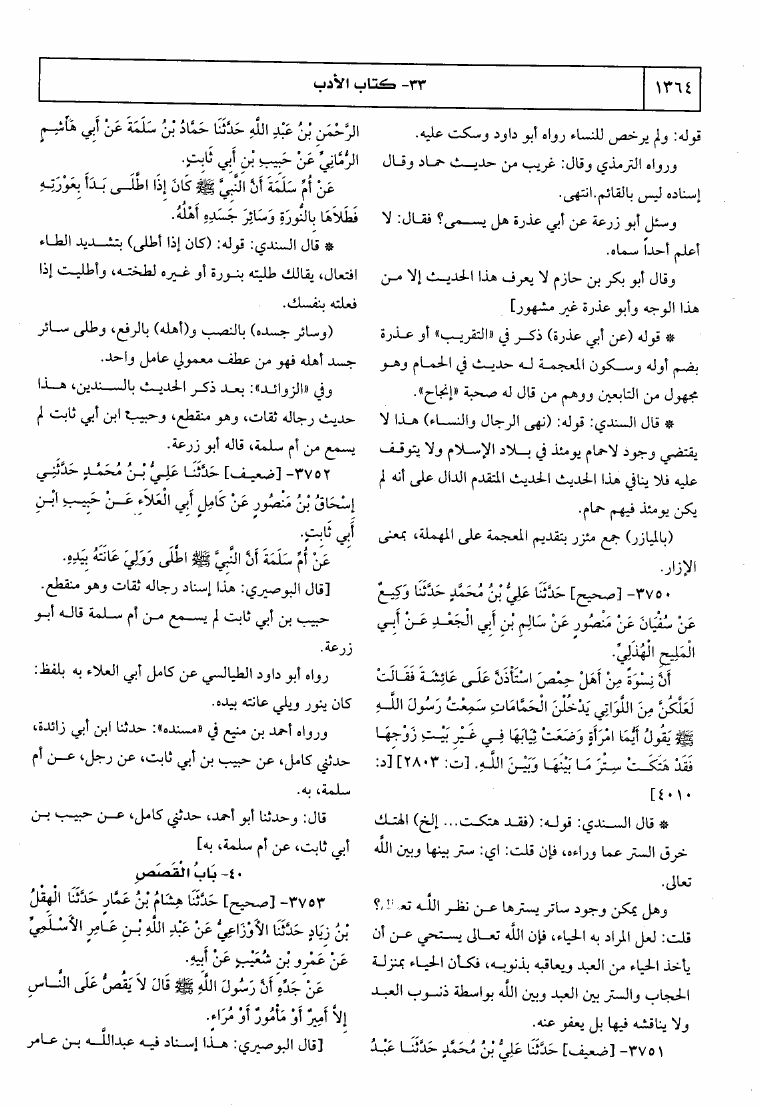 ١٣٦٤
٣٣- كتاب الأدب
قوله: ولم يرخص للنساء رواه أبو داود وسكت عليه.
ورواه الترمذي وقال: غريب من حديث حماد وقال
إسناده ليس بالقائم.انتهى.
وسئل أبو زرعة عن أبي عذرة هل يسمى؟ فقال: لا
أعلم أحداً سماه.
وقال أبو بكر بن حازم لا يعرف هذا الحديث إلا من
هذا الوجه وأبو عذرة غير مشهور]
* قوله (عن أبي عذرة) ذكر في «التقريب» أو عذرة
بضم أوله وسكون المعجمة له حديث في الحمام وهو
مجهول من التابعين ووهم من قال له صحبة «إنجاح».
* قال السندي: قوله: (نهى الرجال والنساء) هذا لا
يقتضي وجود لاحمام يومئذ في بلاد الإسلام ولا يتوقف
عليه فلا ينافي هذا الحديث الحديث المتقدم الدال على أنه لم
يكن يومئذ فيهم حمام.
(بالميازر) جمع مئزر بتقديم المعجمة على المهملة، بمعنى
الإزار.
٣٧٥٠- [صحيح] حَدَّثَنَا عَلِيُّ بْنُ مُحَمَّدٍ حَدَّثَنَا وَكِيعٌ
عَنْ سُفْيَانَ عَنْ مَنْصُورٍ عَنْ سَالِمِ بْنِ أَبِي الْجَعْدِ عَنْ أَبِي
الْمَلِيحِ الْهُذَلِيِّ.
أَنَّ نِسْوَةً مِنْ أَهْلِ حِمْصَ اسْتَأْذَنَّ عَلَى عَائِشَةَ فَقَالَتْ
لَعَلَّكُنَّ مِنَ اللَّوَاتِي يَدْخُلْنَ الْحَمَّامَاتِ سَمِعْتُ رَسُولَ اللَّهِ
ﷺ يَقُولُ أَيُّمَا امْرَأَةٍ وَضَعَتْ ثِيَابَهَا فِي غَيْرِ بَيْتِ زَوْجِهَا
فَقَدْ هَتَكَتْ سِتْرَ مَا بَيْنَهَا وَبَيْنَ اللَّهِ. [ت: ٢٨٠٣] [د:
٤٠١٠]
* قال السندي: قوله: (فقد هتكت... إلخ) الهتك
خرق الستر عما وراءه، فإن قلت: اي: ستر بينها وبين الله
تعالى.
وهل يمكن وجود ساتر يسترها عن نظر الله
قلت: لعل المراد به الحياء، فإن الله تعالى يستحي عن أن
يأخذ الحياء من العبد ويعاقبه بذنوبه، فكأن الحياء بمنزلة
الحجاب والستر بين العبد وبين الله بواسطة ذنوب العبد
ولا يناقشه فيها بل يعفو عنه.
٣٧٥١- [ضعيف] حَدَّثَنَا عَلِيُّ بْنُ مُحَمَّدٍ حَدَّثَنَا عَبْدُ
الرَّحْمَنِ بْنُ عَبْدِ اللَّهِ حَدَّثَنَا حَمَّادُ بْنُ سَلَمَةَ عَنْ أَبِي هَاشِمٍ
الرُّمَّانِيِّ عَنْ حَبِيبِ بْنِ أَبِي ثَابِتٍ.
عَنْ أُمِّ سَلَمَةَ أَنَّ النَّبِيَّ ﷺ كَانَ إِذَا اطَّلَى بَدَأَ بِعَوْرَتِهِ
فَطَلاَهَا بِالنُّورَةِ وَسَائِرَ جَسَدِهِ أَهْلُهُ.
* قال السندي: قوله: (كان إذا أطلى) بتشديد الطاء
افتعال، يقالك طليته بنورة أو غيره لطخته، وأطليت إذا
فعلته بنفسك.
(وسائر جسده) بالنصب و(أهله) بالرفع، وطلى سائر
جسد أهله فهو من عطف معمولي عامل واحد.
وفي «الزوائد»: بعد ذكر الحديث بالسندين، هذا
حديث رجاله ثقات، وهو منقطع، وحبيب ابن أبي ثابت لم
يسمع من أم سلمة، قاله أبو زرعة.
٣٧٥٢- [ضعيف] حَدَّثَنَا عَلِيُّ بْنُ مُحَمَّدٍ حَدَّثَنِي
إِسْحَاقُ بْنُ مَنْصُورٍ عَنْ كَامِلٍ أَبِي الْعَلاَءِ عَنْ حَبِيبِ ابْنِ
أَبِي ثَابِتٍ.
عَنْ أُمِّ سَلَمَةَ أَنَّ النَّبِيَّ ﷺ اطَّلَى وَوَلِيَ عَانَتَهُ بِيَدِهِ.
[قال البوصيري: هذا إسناد رجاله ثقات وهو منقطع.
حبيب بن أبي ثابت لم يسمع من أم سلمة قاله أبو
زرعة.
رواه أبو داود الطيالسي عن كامل أبي العلاء به بلفظ:
كان ينور ويلي عانته بيده.
ورواه أحمد بن منيع في «مسنده»: حدثنا ابن أبي زائدة،
حدثني كامل، عن حبيب بن أبي ثابت، عن رجل، عن أم
سلمة، به.
قال: وحدثنا أبو أحمد، حدثني كامل، عن حبيب بن
أبي ثابت، عن أم سلمة، به]
٤٠- بَابُ الْقَصَصِ
٣٧٥٣- [صحيح] حَدَّثَنَا هِشَامُ بْنُ عَمَّارٍ حَدَّثَنَا الْهِقْلُ
بْنُ زِيَادٍ حَدَّثَنَا الأَوْزَاعِيُّ عَنْ عَبْدِ اللَّهِ بْنِ عَامِرٍ الأَسْلَمِيِّ
عَنْ عَمْرِو بْنِ شُعَيْبٍ عَنْ أَبِيهِ.
عَنْ جَدِّهِ أَنَّ رَسُولَ اللَّهِ ﷺ قَالَ لاَ يَقُصُّ عَلَى النَّاسِ
إِلاَّ أَمِيرٌ أَوْ مَأْمُورٌ أَوْ مُرَاءٍ.
[قال البوصيري: هذا إسناد فيه عبدالله بن عامر